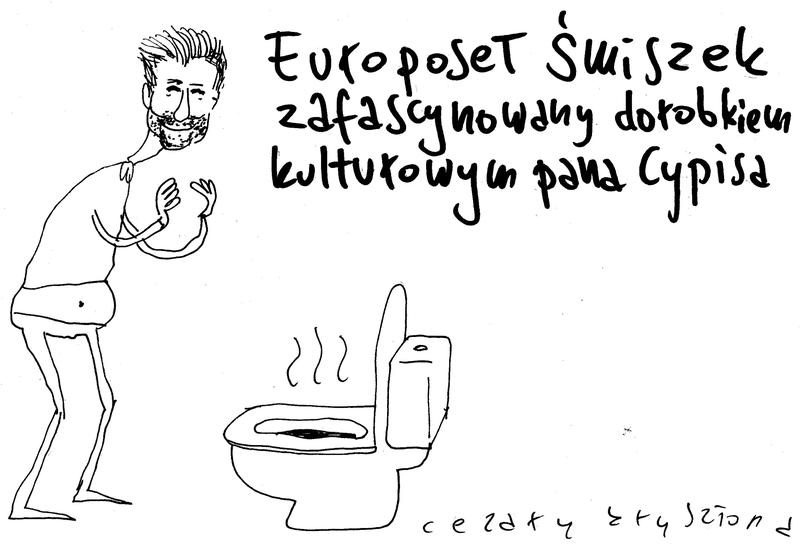 Europoseł Śmiszek
zafascynowany dorobkiem
kulturowym pana Cypisa
cezary krysztopa